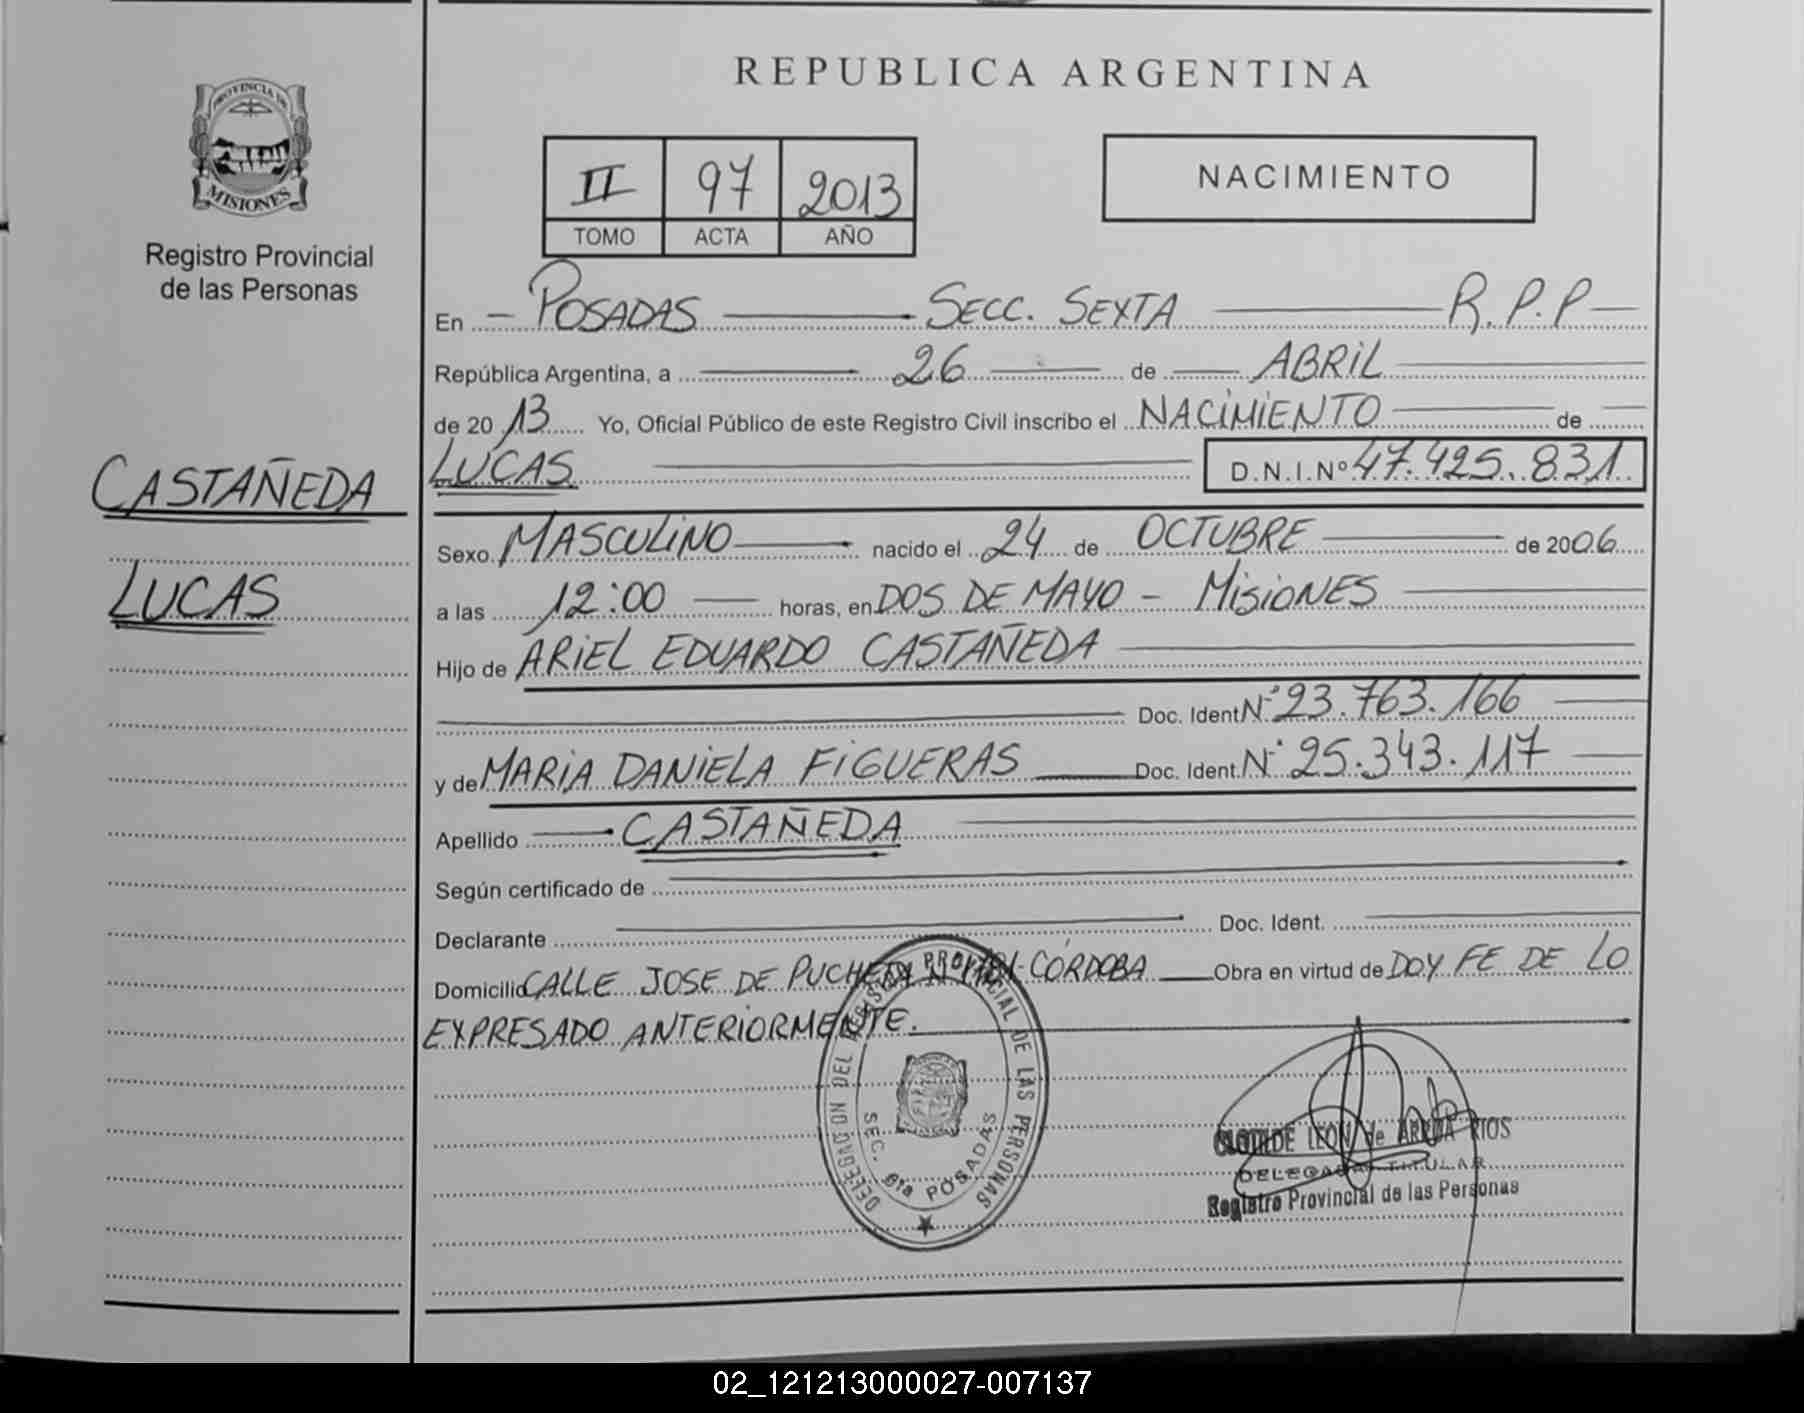 PROVINCIA DE
MISIONES
Registro Provincial
de las Personas
CASTAÑEDA
LUCAS
REPUBLICA ARGENTINA
II 97 2013
TOMO ACTA AÑO
NACIMIENTO
En POSADAS SECC. SEXTA R.P.P
República Argentina, a 26 de ABRIL
de 20 13 Yo, Oficial Público de este Registro Civil inscribo el NACIMIENTO de
LUCAS D.N.I.Nº 47.425.831
Sexo MASCULINO nacido el 24 de OCTUBRE de 2006
a las 12:00 horas, en DOS DE MAYO - MISIONES
Hijo de ARIEL EDUARDO CASTAÑEDA
Doc. Ident Nº 23.763.166
y de MARIA DANIELA FIGUERAS Doc. Ident. Nº 25.343.117
Apellido CASTAÑEDA
Según certificado de
Declarante Doc. Ident.
Domicilio CALLE JOSE DE PUCHETA Nº CÓRDOBA Obra en virtud de DOY FE DE LO
EXPRESADO ANTERIORMENTE.
DELEGACION DEL REGISTRO PROVINCIAL DE LAS PERSONAS
SEC. 6ta POSADAS
CLOTILDE LEON de RIOS
DELEGADA TITULAR
Registro Provincial de las Personas
02_121213000027-007137